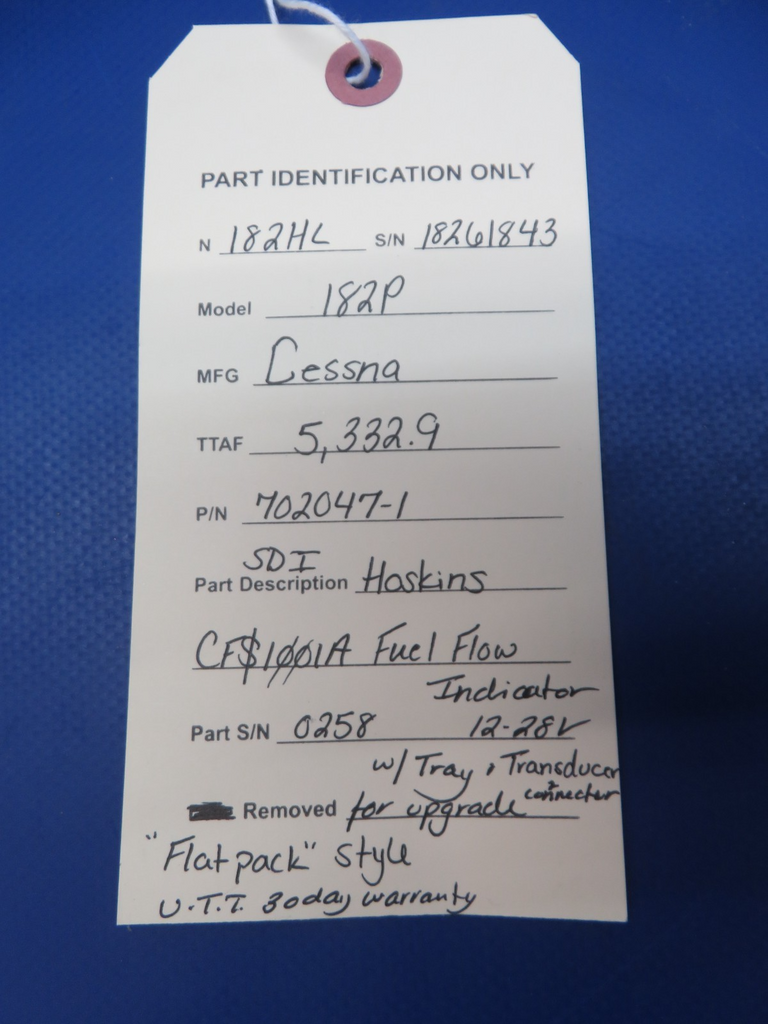 PART IDENTIFICATION ONLY
N 182HL S/N 18261843
Model 182P
MFG Cessna
TTAF 5,332.9
P/N 702047-1
SDI
Part Description Hoskins
CFS1001A Fuel Flow
Indicator
Part S/N 0258 12-28V
w/ Tray, Transducer
& connector
Removed for upgrade
"Flatpack" style
U.T.T. 30day warranty